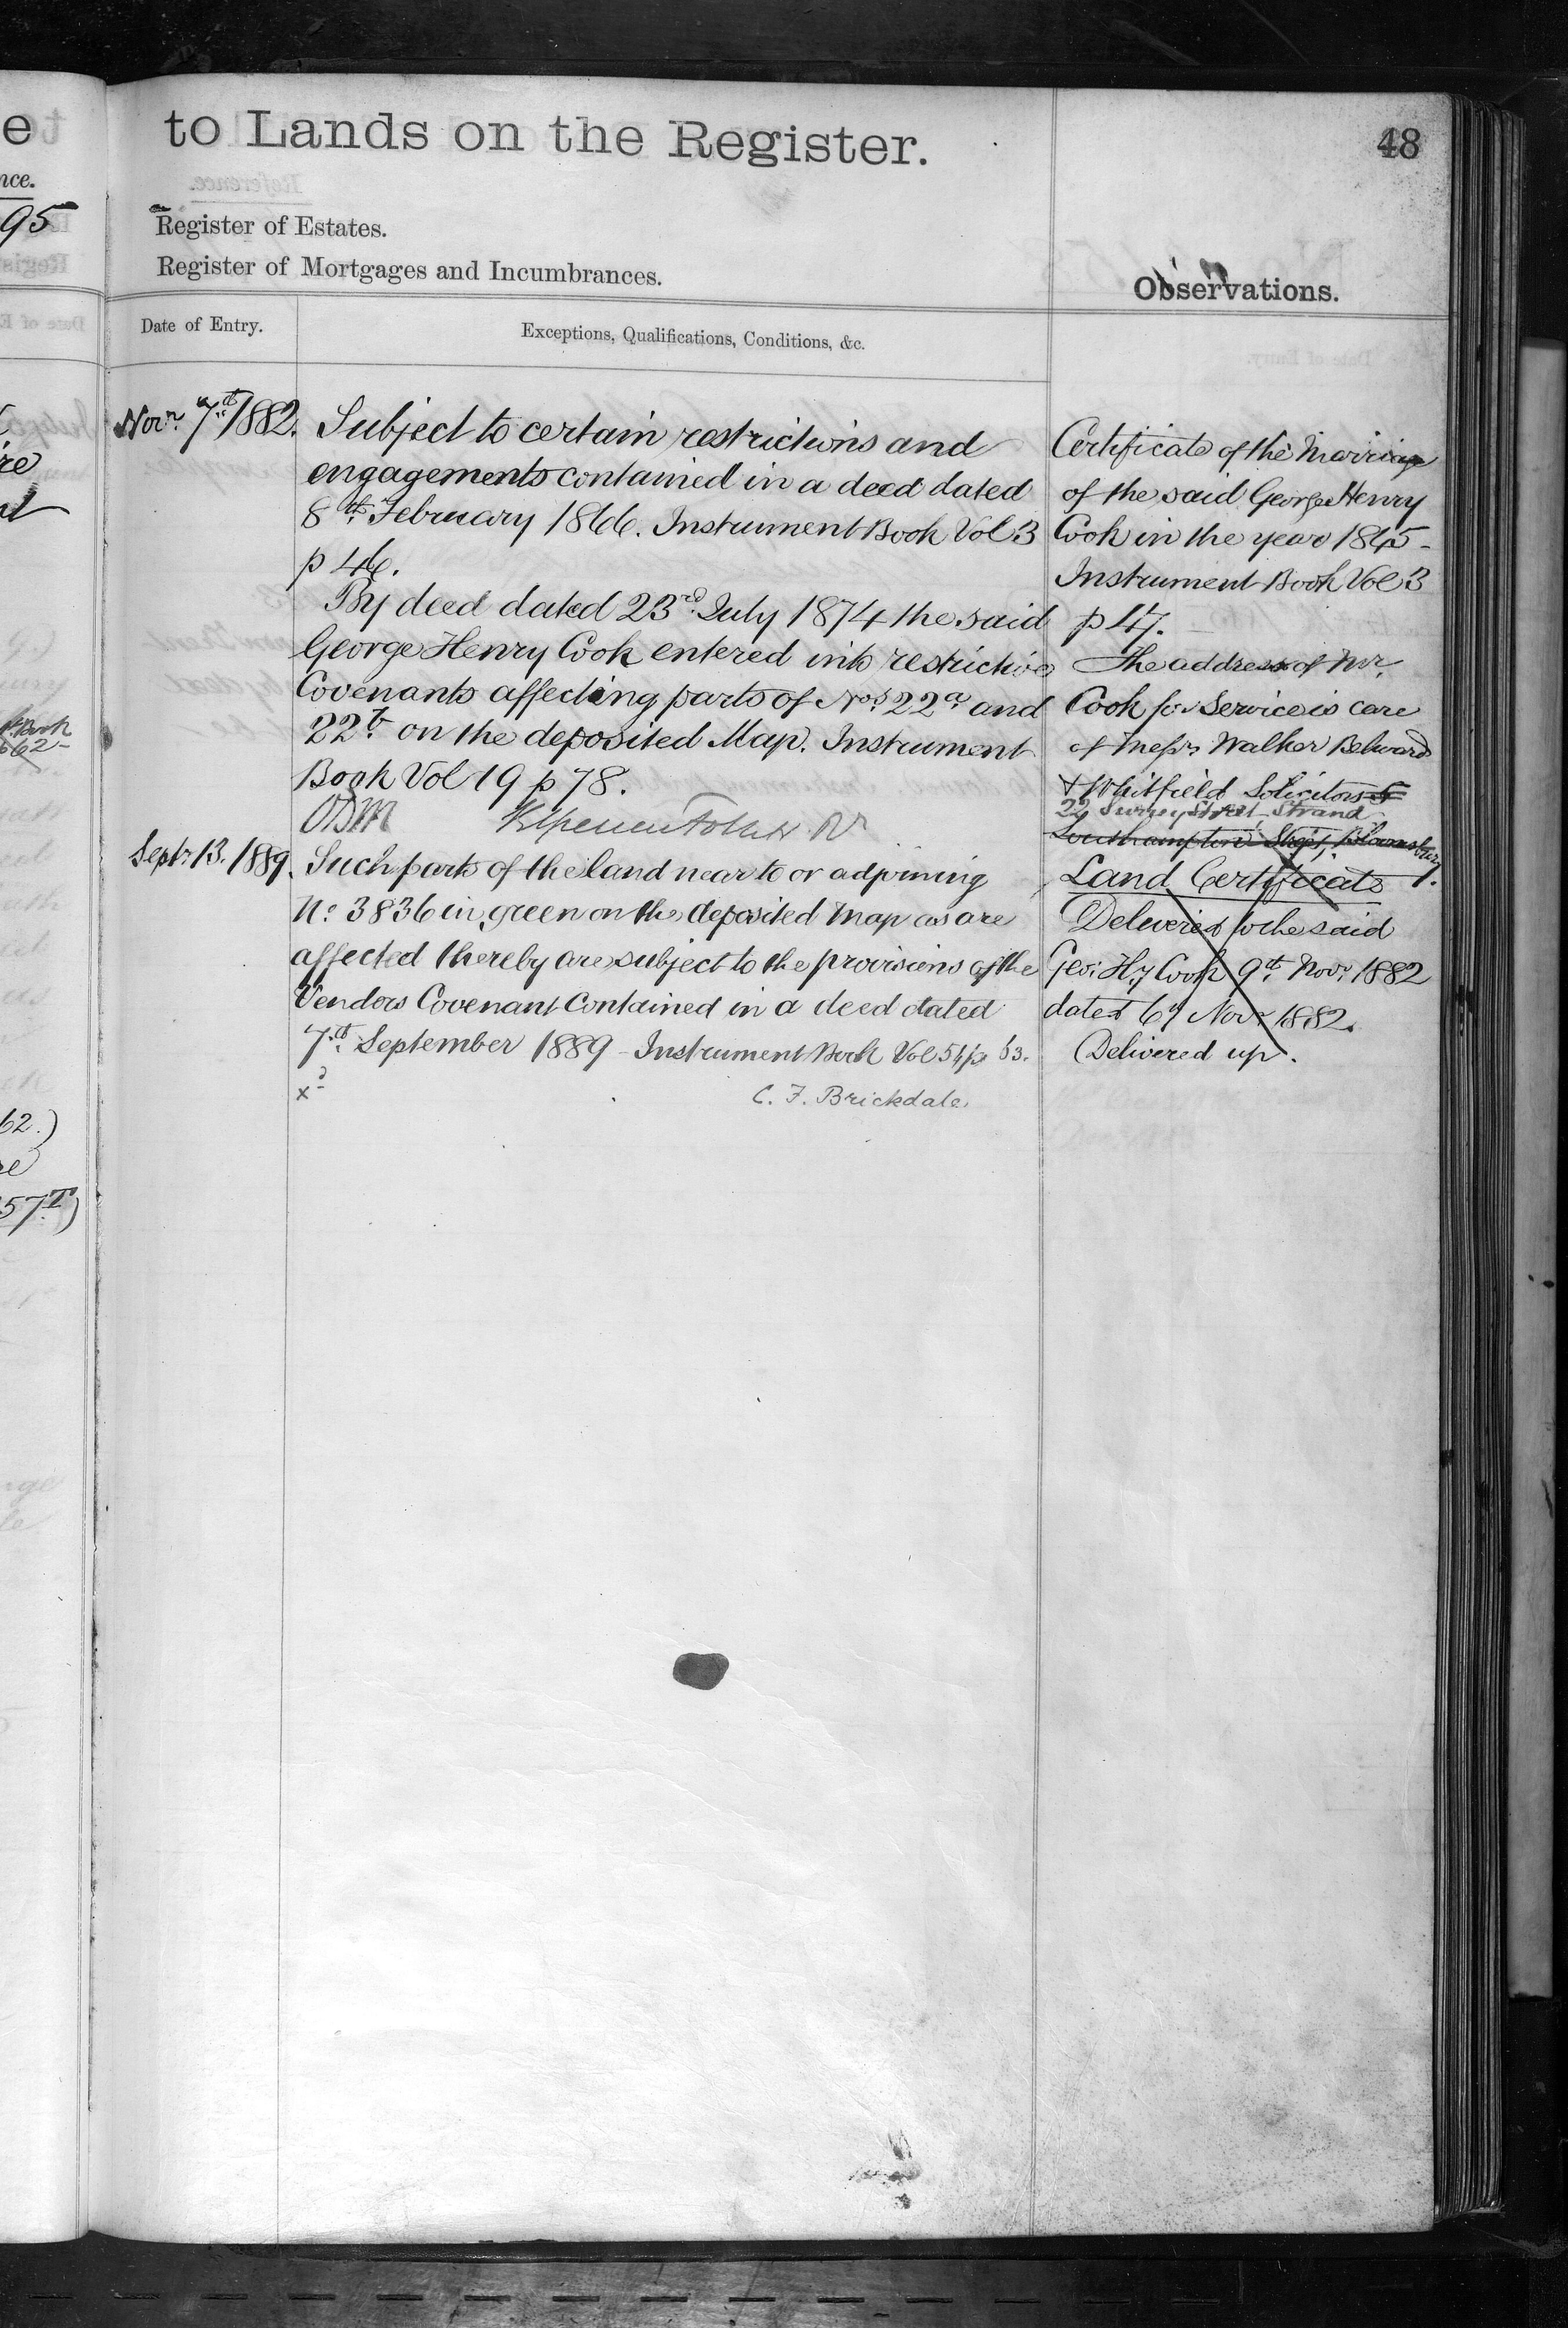 to Lands on the Register.
48
Register of Estates.
Register of Mortgages and Incumbrances.
Observations.
Date of Entry.
Exceptions, Qualifications, Conditions, &c.
Novr. 7th 1882.
Subject to certain restrictions and
engagements contained in a deed dated
8th February 1866. Instrument Book Vol 3
p 46.
By deed dated 23rd July 1874 the said
George Henry Cook entered into restrictive
Covenants affecting parts of Nos 22a and
22b on the deposited Map. Instrument
Book Vol 19 p 78.
Sept: 13. 1889.
Such parts of the land near to or adjoining
No: 3836 in green on the deposited Map as are
affected thereby are subject to the provisions of the
Vendors Covenant contained in a deed dated
7th September 1889 - Instrument Book Vol 54 p 63.
C. F. Brickdale.
Certificate of the Marriage
of the said George Henry
Cook in the year 1865 -
Instrument Book Vol 3
p 47.
The address of Mr.
Cook for Service is care
of Messrs Walker Belward
& Whitfield Solicitors
22 Surrey Street Strand
Southampton Street, Bloomsbury
Land Certificate 1.
Delivered to the said
Geo: Hy Cook 9th Novr 1882
dated 6th Novr 1882.
Delivered up.
e
nce.
95
62.)
57T)